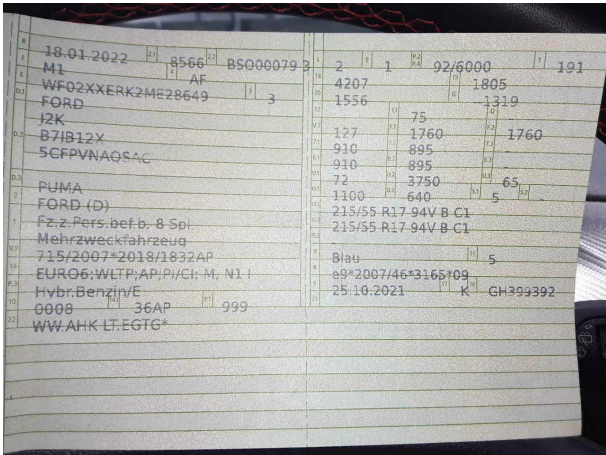 18.01.2022 8566 BSO00079 3
M1 AF
WF02XXERK2ME28649 3
FORD
J2K
B7JB12X
5CFPVNAQSAC
PUMA
FORD (D)
Fz.z.Pers.bef.b. 8 Spl
Mehrzweckfahrzeug
715/2007*2018/1832AP
EURO6;WLTP;AP,PI/CI; M, N1 I
Hybr.Benzin/E
0008 36AP 999
WW.AHK LT.EGTG*
2 1 92/6000 191
4207 1805
1556 1319
75
127 1760 1760
910 895
910 895
72 3750 65
1100 640 5
215/55 R17 94V B C1
215/55 R17 94V B C1
Blau 5
e9*2007/46*3165*09
25.10.2021 K GH399392